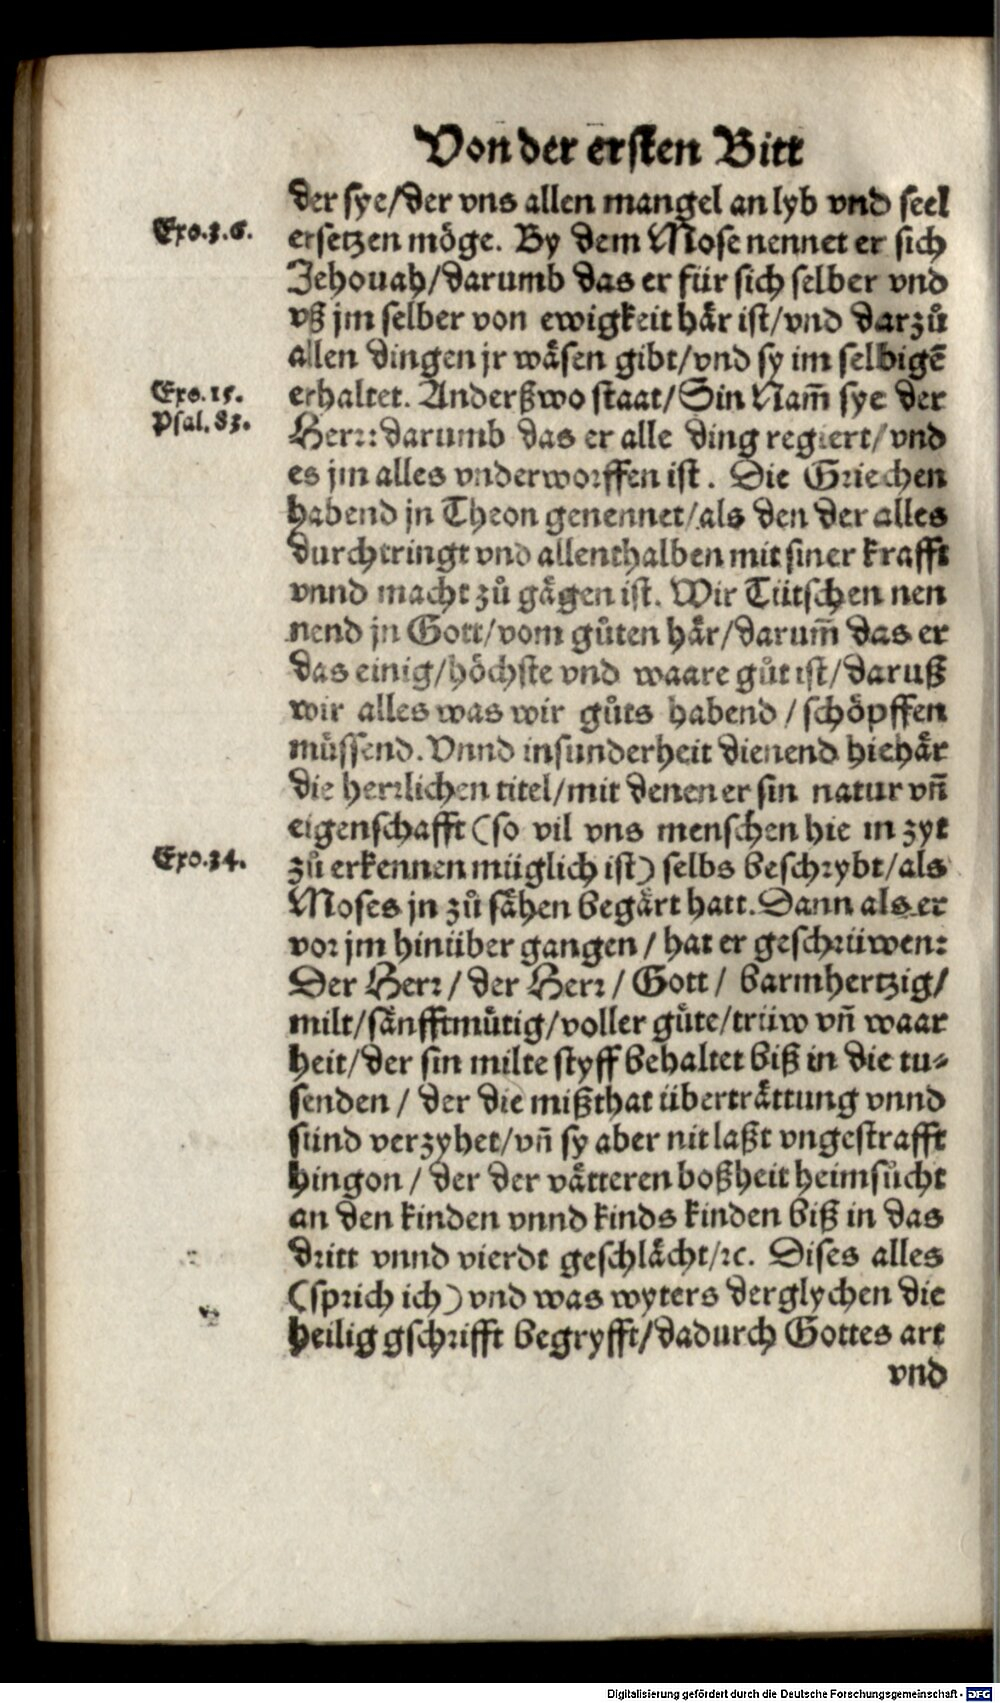 Von der ersten Bitt
der sye/der vns allen mangel an lyb vnd seel
Exo.3.6.
ersetzen möge. By dem Mose nennet er sich
Jehouah/darumb das er für sich selber vnd
vß jm selber von ewigkeit här ist/vnd darzů
allen dingen jr wäsen gibt/vnd sy im selbigē
Exo.15.
erhaltet. Anderßwo staat/Sin Nam̄ sye der
Psal.83.
Herr: darumb das er alle ding regiert/vnd
es jm alles vnderworffen ist. Die Griechen
habend jn Theon genennet/als den der alles
durchtringt vnd allenthalben mit siner krafft
vnnd macht zů gägen ist. Wir Tütschen nen
nend jn Gott/vom gůten här/darum̄ das er
das einig/höchste vnd waare gůt ist/daruß
wir alles was wir gůts habend / schöpffen
müssend. Vnnd insunderheit dienend hiehär
die herrlichen titel/mit denen er sin natur vn̄
eigenschafft (so vil vns menschen hie in zyt
Exo.34.
zů erkennen müglich ist) selbs beschrybt/als
Moses jn zů sähen begärt hatt. Dann als er
vor jm hinüber gangen / hat er geschrüwen:
Der Herr / der Herr / Gott / barmhertzig/
milt/sänfftmütig/voller güte/trüw vn̄ waar
heit/der sin milte styff behaltet biß in die tu⸗
senden / der die mißthat überträttung vnnd
sünd verzyhet/vn̄ sy aber nit laßt vngestrafft
hingon / der der vätteren boßheit heimsůcht
an den kinden vnnd kinds kinden biß in das
dritt vnnd vierdt geschlächt/ꝛc. Dises alles
(sprich ich) vnd was wyters derglychen die
heilig gschrifft begryfft/dadurch Gottes art
vnd
Digitalisierung gefördert durch die Deutsche Forschungsgemeinschaft - DFG